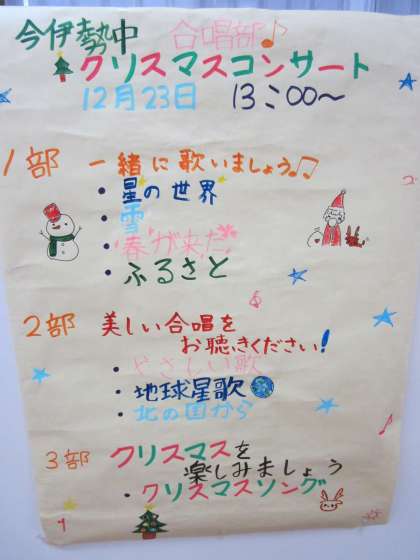 今伊勢中 合唱部♪
クリスマスコンサート
12月23日 13:00〜
1部 一緒に歌いましょう。♫
・星の世界
・雪
・春が来た
・ふるさと
2部 美しい合唱を
お聴きください!
・やさしい歌
・地球星歌
・北の国から
3部 クリスマスを
楽しみましょう
・クリスマスソング